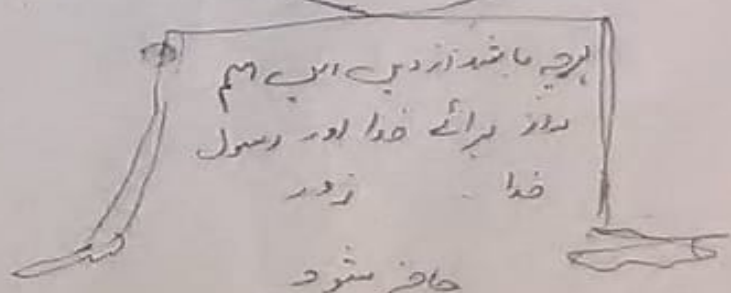 ہرچہ باشد از دیں اسم
برائے خدا اور رسول
خدا زود
حاضر شود